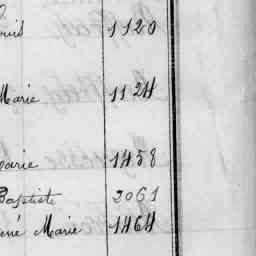 ouis 1120
Marie 1124
Marie 1458
Baptiste 2061
ené Marie 1464